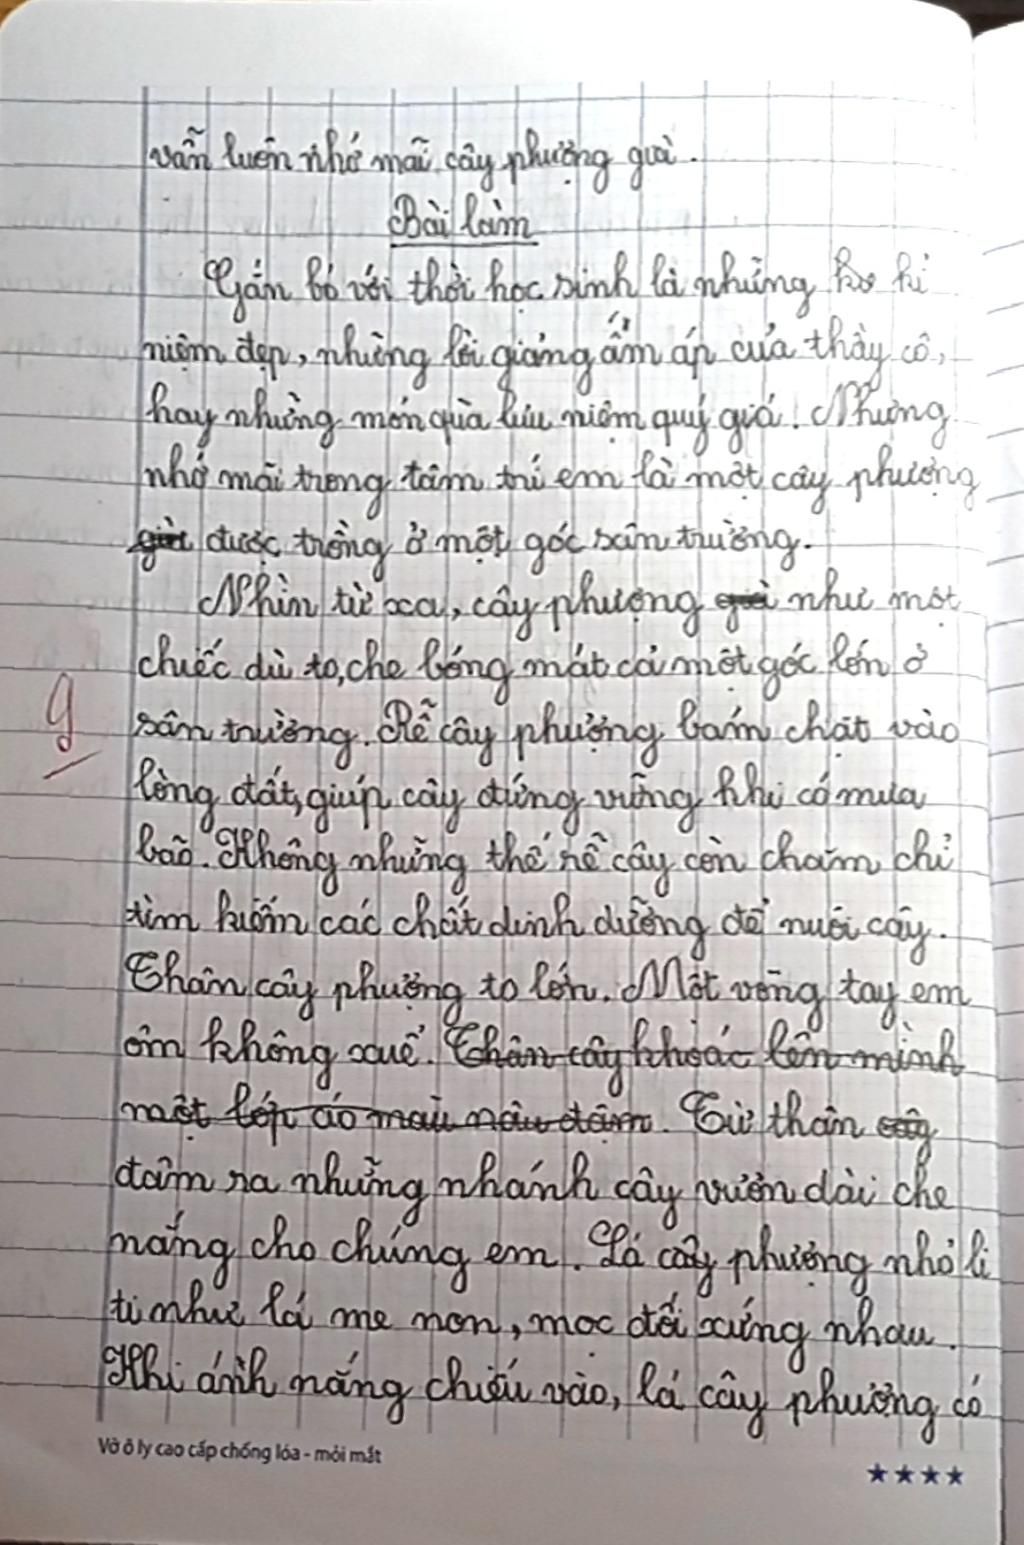 vẫn luôn nhớ mãi cây phượng già.
Bài làm
Gắn bó với thời học sinh là những kỉ
niệm đẹp, những lời giảng ấm áp của thầy cô,
hay những món quà lưu niệm quý giá! Nhưng
nhớ mãi trong tâm trí em là một cây phượng
già được trồng ở một góc sân trường.
Nhìn từ xa, cây phượng già như một
chiếc dù to, che bóng mát cả một góc lớn ở
9
sân trường. Rễ cây phượng bám chặt vào
lòng đất, giúp cây đứng vững khi có mưa
bão. Không những thế rễ cây còn chăm chỉ
tìm kiếm các chất dinh dưỡng để nuôi cây.
Thân cây phượng to lớn. Một vòng tay em
ôm không xuể. Thân cây khoác lên mình
một lớp áo màu nâu đậm. Từ thân cây
đâm ra những nhánh cây vươn dài che
nắng cho chúng em. Lá cây phượng nhỏ li
ti như lá me non, mọc đối xứng nhau.
Khi ánh nắng chiếu vào, lá cây phượng có
Vở ô ly cao cấp chống lóa - mỏi mắt